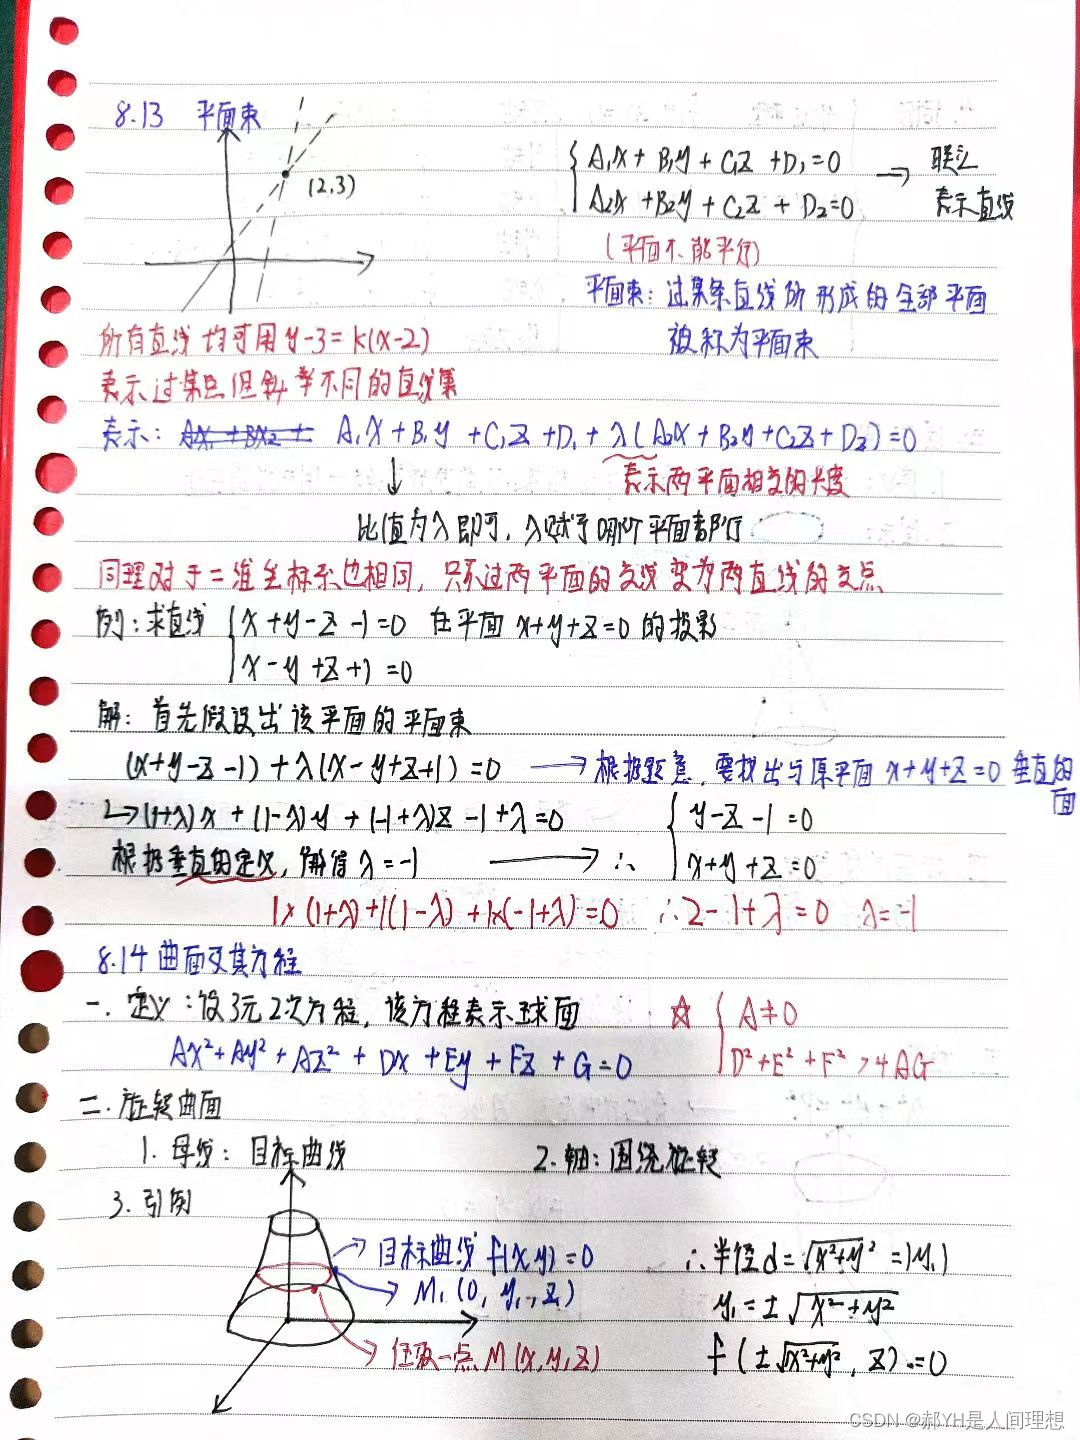 8.13 平面束
(2,3)
{ A₁x + B₁y + C₁z + D₁ = 0 → 联立
A₂x + B₂y + C₂z + D₂ = 0 表示直线
(平面不能平行)
平面束: 过某条直线所形成的全部平面
被称为平面束
所有直线均可用 y-3 = k(x-2)
表示过某点但斜率不同的直线集
表示: A₁x + B₁y + C₁z + D₁ + λ(A₂x + B₂y + C₂z + D₂) = 0
↓ 表示两平面相交的长度
比值为λ即可, λ赋予哪个平面都行
同理对于二维坐标系也相同, 只不过两平面的交线变为两直线的交点
例: 求直线 { x + y - z - 1 = 0 在平面 x+y+z=0 的投影
x - y + z + 1 = 0
解: 首先假设出该平面的平面束
(x+y-z-1) + λ(x-y+z+1) = 0 → 根据题意, 要找出与原平面 x+y+z=0 垂直的
面
↳ (1+λ)x + (1-λ)y + (-1+λ)z - 1 + λ = 0 { y-z-1 = 0
根据垂直的定义, 解得 λ = -1 → ∴ x+y+z = 0
1×(1+λ)+1(1-λ)+1×(-1+λ)=0 ∴2-1+λ=0 λ=-1
8.14 曲面及其方程
一. 定义: 设3元2次方程, 该方程表示球面 ☆ { A≠0
Ax²+Ay²+Az²+Dx+Ey+Fz+G=0 D²+E²+F²>4AG
二. 旋转曲面
1. 母线: 目标曲线 2. 轴: 围绕旋转
3. 引例
→ 目标曲线 f(x,y)=0 ∴半径d=√x²+y² =|y₁|
→ M₁(0, y₁, z₁) y₁=±√x²+y²
→ 任取一点 M(x,y,z) f(±√x²+y², z)=0
CSDN @郝YH是人间理想